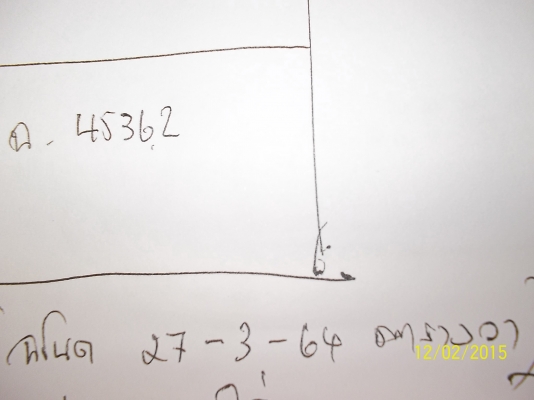 ฉ. 45362
โฉนด 27-3-64 ตารางวา
12/02/2015